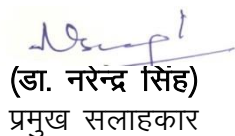 (डा. नरेन्द्र सिंह)
प्रमुख सलाहकार